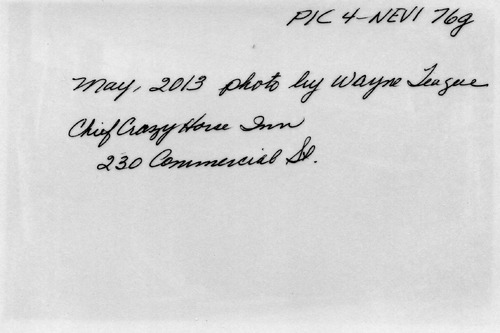 PIC 4-NEVI 76g
May, 2013 photo by Wayne Teague
Chief Crazy Horse Inn
230 Commercial St.